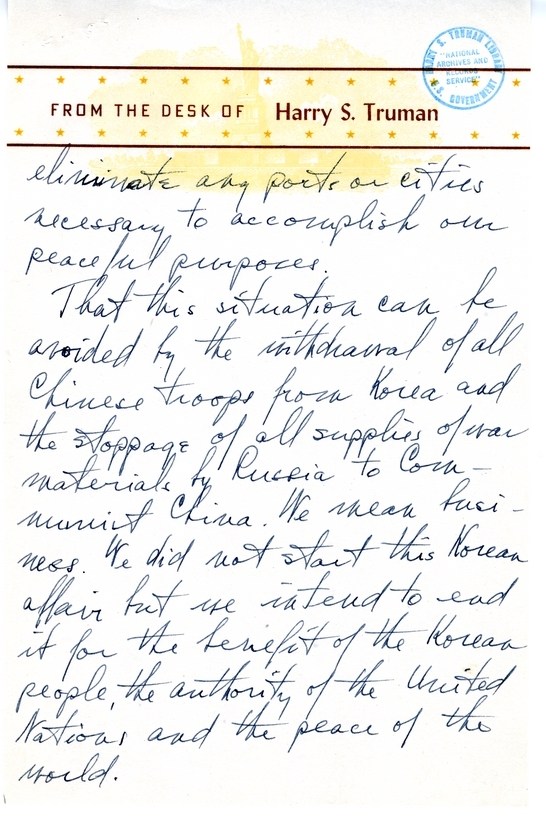 HARRY S. TRUMAN LIBRARY
"NATIONAL
ARCHIVES AND
RECORDS
SERVICE"
U.S. GOVERNMENT
FROM THE DESK OF Harry S. Truman
eliminate any ports or cities
necessary to accomplish our
peaceful purposes.
That this situation can be
avoided by the withdrawal of all
Chinese troops from Korea and
the stoppage of all supplies of war
materials by Russia to Com-
munist China. We mean busi-
ness. We did not start this Korean
affair but we intend to end
it for the benefit of the Korean
people, the authority of the United
Nations and the peace of the
world.